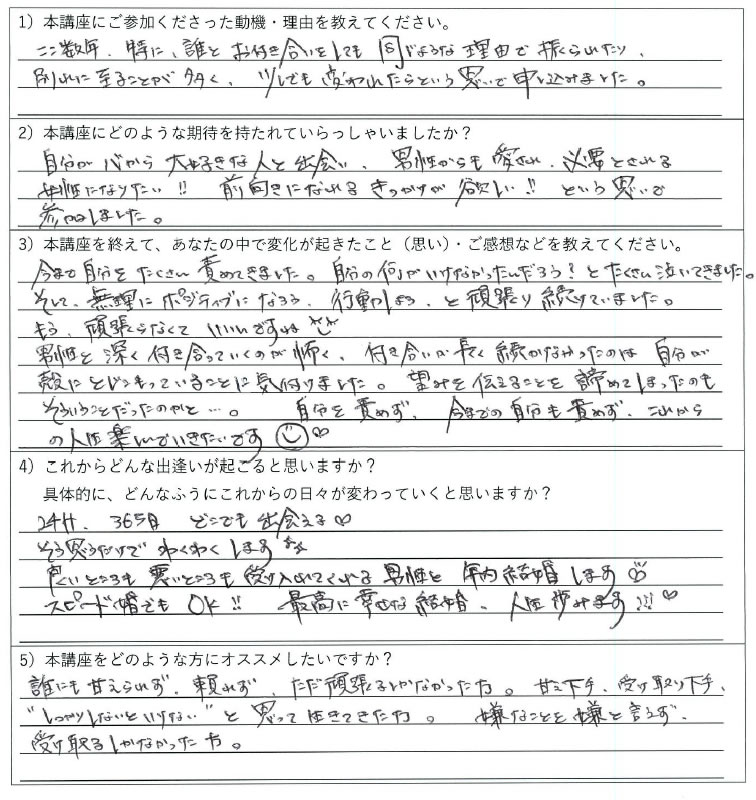 1）本講座にご参加くださった動機・理由を教えてください。
ここ数年、特に、誰とお付き合いをしても同じような理由で振られたり、
別れに至ることが多く、少しでも変われたらという思いで申し込みました。
2）本講座にどのような期待を持たれていらっしゃいましたか？
自分が心から大好きな人と出会い、男性からも愛され、必要とされる
女性になりたい!! 前向きになれるきっかけが欲しい!! という思いで
参加しました。
3）本講座を終えて、あなたの中で変化が起きたこと（思い）・ご感想などを教えてください。
今まで自分をたくさん責めてきました。自分の何がいけなかったんだろう？とたくさん泣いてきました。
そして、無理にポジティブになろう、行動しよう、と頑張り続けていました。
もう、頑張らなくていいんですね
男性と深く付き合っていくのが怖く、付き合いが長く続かなかったのは自分が
殻にとじこもっていることに気付けました。望みを伝えることを諦めてしまったのも
そういうことだったのかと…。 自分を責めず、今までの自分も責めず、これから
の人生楽しんでいきたいです☺♡
4）これからどんな出逢いが起こると思いますか？
具体的に、どんなふうにこれからの日々が変わっていくと思いますか？
24H、365日 どこでも出会える♡
そう思うだけでわくわくします
良いところも悪いところも受け入れてくれる男性と年内結婚します
スピード婚でもOK!! 最高に幸せな結婚、人生歩みます!!!♡
5）本講座をどのような方にオススメしたいですか？
誰にも甘えられず、頼れず、ただ頑張るしかなかった方。甘え下手、受け取り下手、
"しっかりしないといけない"と思って生きてきた方。嫌なことを嫌と言えず、
受け取るしかなかった方。